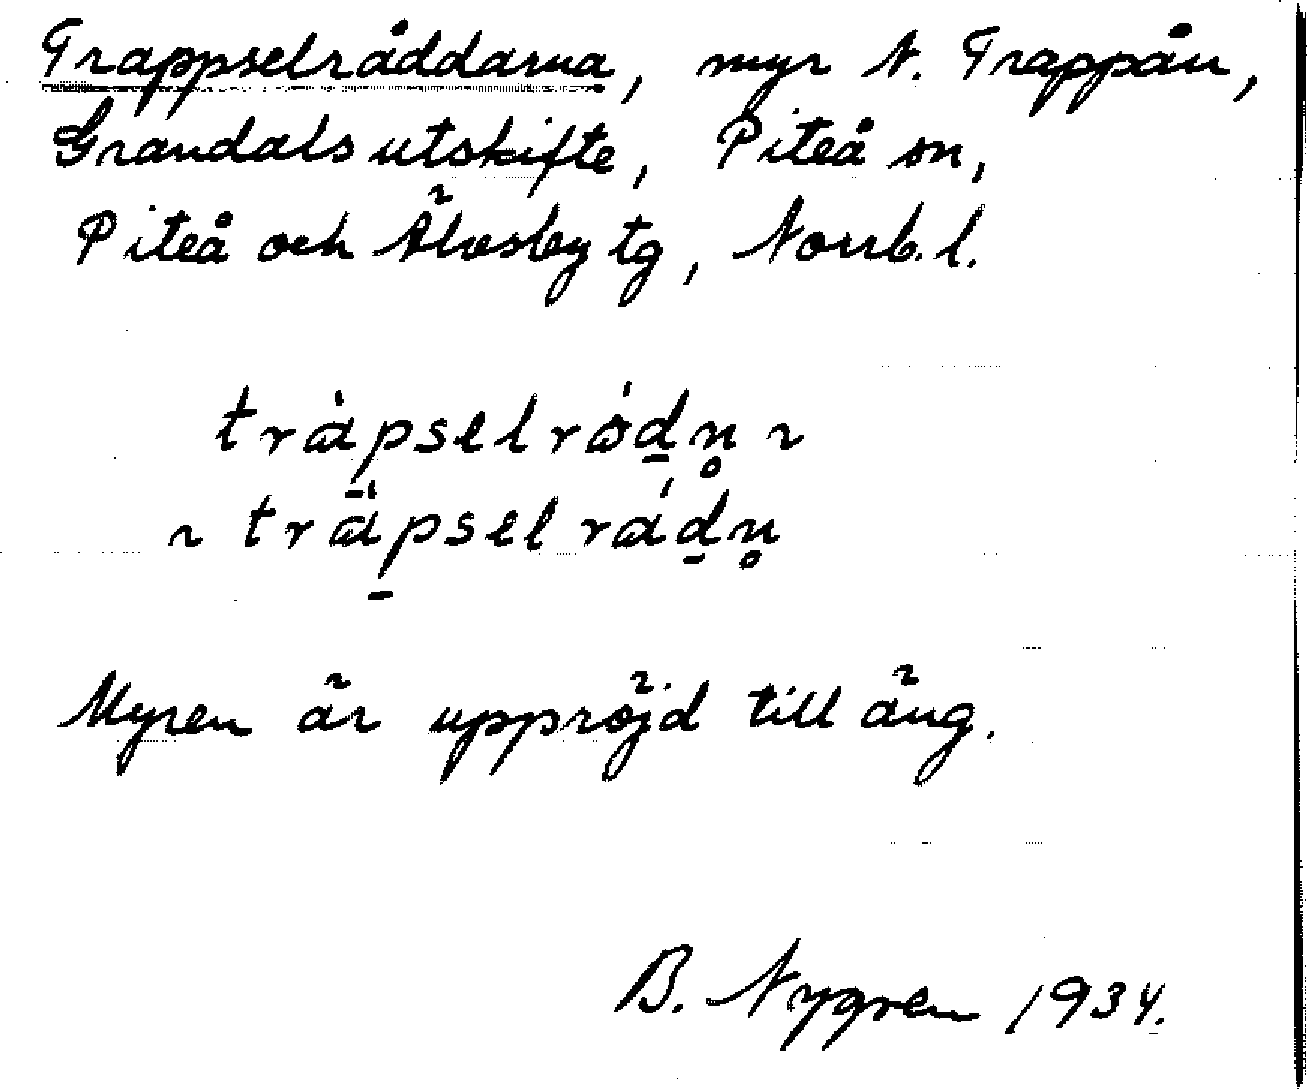 Trappselråddarna, myr N. Trappån,
Grandals utskifte, Piteå sn,
Piteå och Älvsby tg, Norrb. l.
tràpselrόd̠n̥ ~
~ träp̠selrád̠n̥
Myren är uppröjd till äng.
B. Nygren 1934.